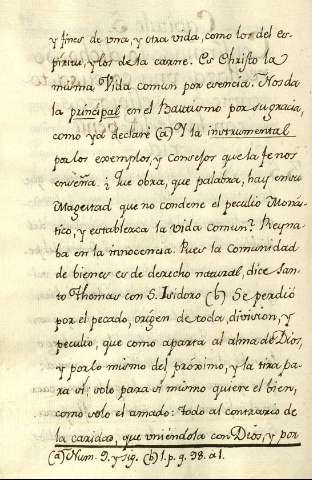 y fines de una, y otra vida, como los del es-
píritu, y los de la carne. Es Christo la
misma Vida comun por esencia. Nos da
la principal en el Bautismo por su gracia,
como ya declaré (a) Y la instrumental
por los exemplos, y consejos que la fe nos
enseña. ¿Que obra, que palabra, hay en su
Magestad que no condene el peculio Monás-
tico, y establezca la vida comun? Reyna-
ba en la innocencia. Pues la comunidad
de bienes es de derecho natural, dice San-
to Thomas con S. Isidoro (b) Se perdió
por el pecado, orígen de toda division, y
peculio, que como aparta al alma de Dios,
y por lo mismo del próximo, y la tira pa-
ra sí; solo para sí mismo quiere el bien,
como solo el amado: Todo al contrario de
la caridad, que uniéndola con Dios, y por
(a) Num. 9. y sig. (b) 1. p. q. 98. a 1.